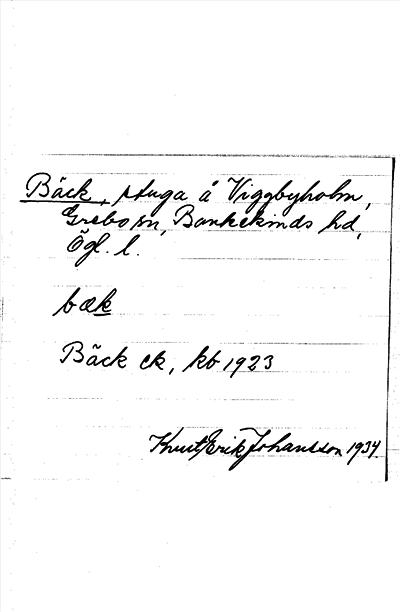 Bäck, stuga å Viggbyholm,
Grebo sn, Bankekinds hd,
Ögl. l.
bæk
Bäck ek, kb 1923
Knut Erik Johansson 1934.